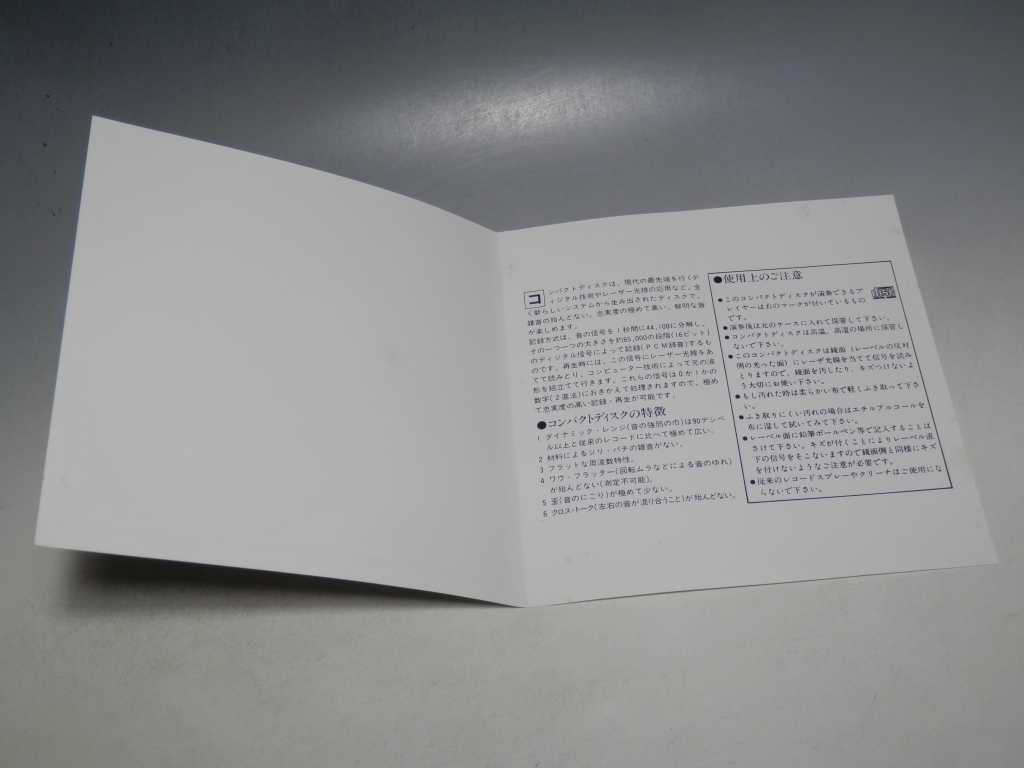 コンパクトディスクは、現代の最先端を行くデ
ィジタル技術やレーザー光線の応用など、全
く新らしいシステムから生み出されたディスクで、
雑音の殆んどない、忠実度の極めて高い、鮮明な音
が楽しめます。
記録方式は、音の信号を1秒間に44,100に分解し、
その一つ一つの大きさを約65,000の段階(16ビット)
のディジタル信号によって記録(PCM録音)するも
のです。再生時には、この信号にレーザー光線をあ
てて読みとり、コンピューター技術によって元の波
形を組立てて行きます。これらの信号は0か1かの
数字(2進法)におきかえて処理されますので、極め
て忠実度の高い記録・再生が可能です。
●コンパクトディスクの特徴
1 ダイナミック・レンジ(音の強弱の巾)は90デシベ
ル以上と従来のレコードに比べて極めて広い。
2 材料によるジリ・パチの雑音がない。
3 フラットな周波数特性。
4 ワウ・フラッター(回転ムラなどによる音のゆれ)
が殆んどない(測定不可能)。
5 歪(音のにごり)が極めて少ない。
6 クロス・トーク(左右の音が混り合うこと)が殆んどない。
●使用上のご注意
●このコンパクトディスクが演奏できるプ
レイヤーは右のマークが付いているもの
です。
●演奏後は元のケースに入れて保管して下さい。
●コンパクトディスクは高温、高湿の場所に保管し
ないで下さい。
●このコンパクトディスクは鏡面(レーベルの反対
側の光った面)にレーザ光線を当てて信号を読み
とりますので、鏡面を汚したり、キズつけないよ
う大切にお使い下さい。
●もし汚れた時は柔らかい布で軽くふき取って下さ
い。
●ふき取りにくい汚れの場合はエチルアルコールを
布に湿して拭いてみて下さい。
●レーベル面に鉛筆ボールペン等で記入することは
さけて下さい。キズが付くことによりレーベル直
下の信号をそこないますので鏡面側と同様にキズ
を付けないようなご注意が必要です。
●従来のレコードスプレーやクリーナはご使用にな
らないで下さい。